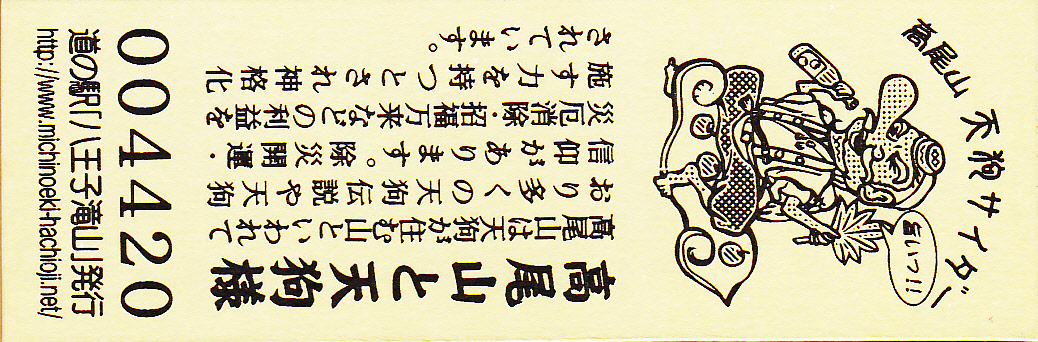 高尾山 天狗サイダー
旨いっ!!
高尾山と天狗様
高尾山は天狗が住む山といわれて
おり多くの天狗伝説や天狗
信仰があります。除災開運・
災厄消除・招福万来などの利益を
施す力を持つとされ神格化
されています。
004420
道の駅「八王子滝山」発行
http://www.michinoeki-hachioji.net/